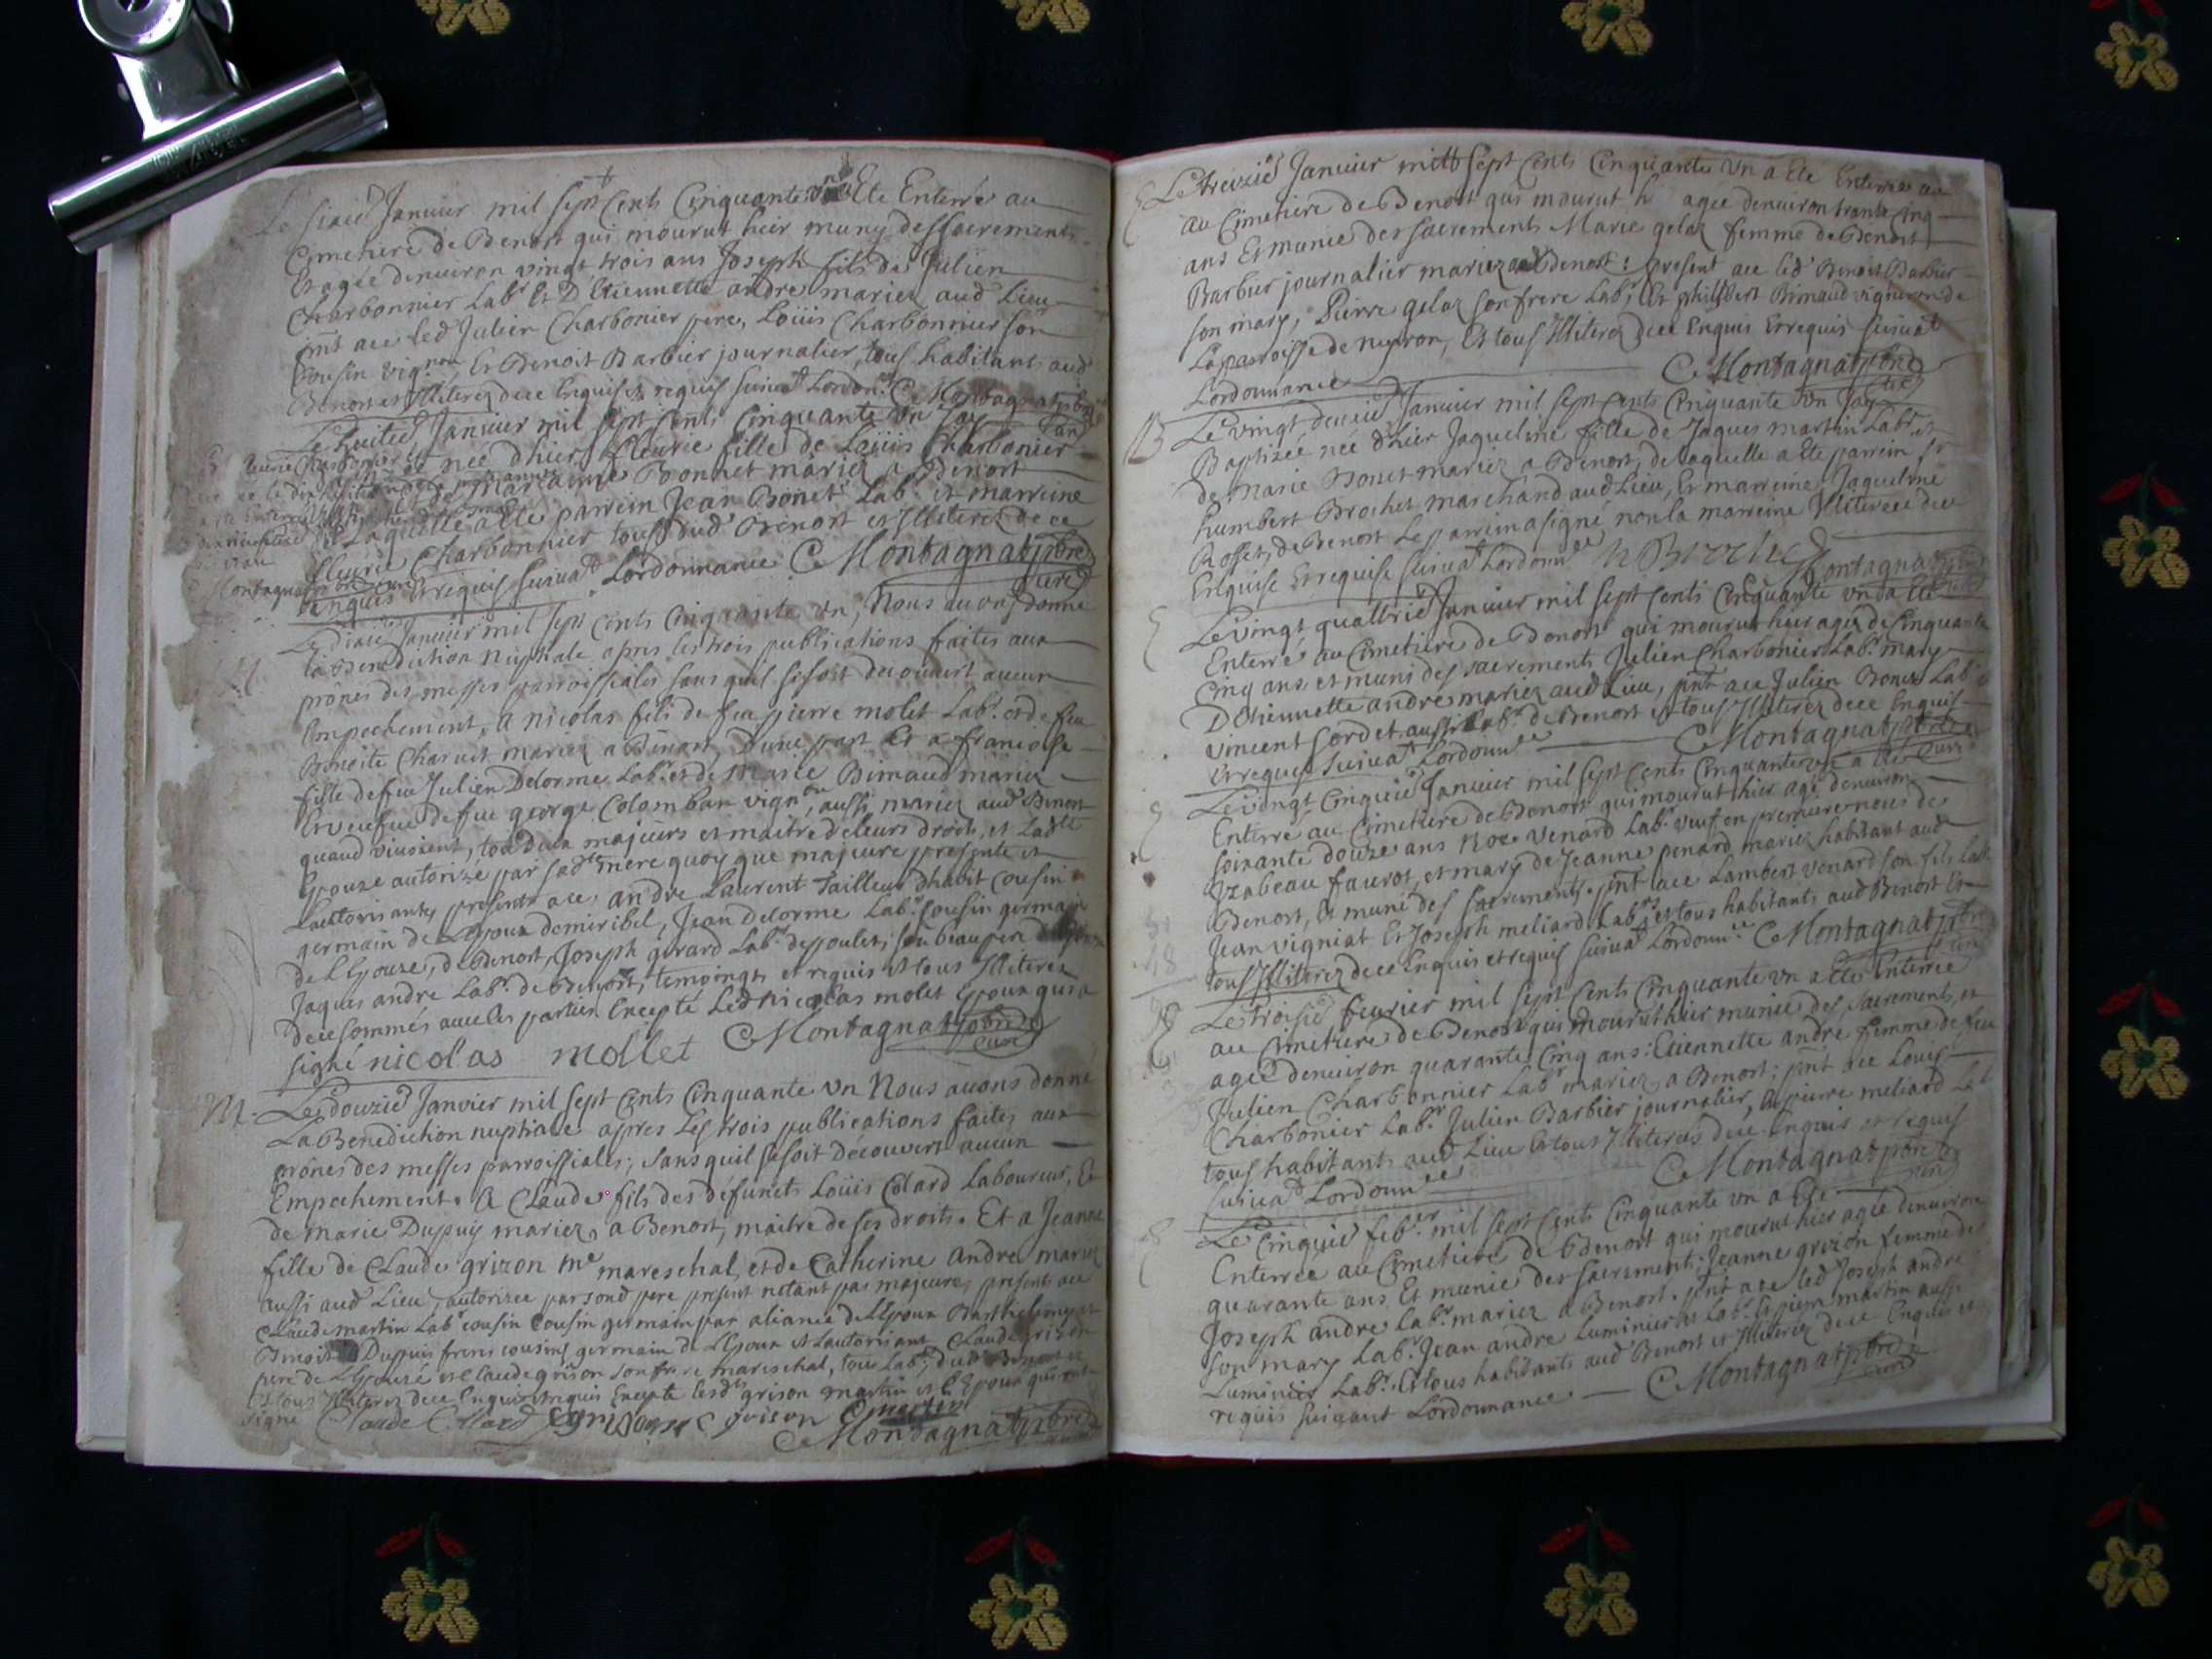 Le sixie Janvier mil sept Cents Cinquante un a Ete Enterré au
Cimetiere de Benost qui mourut hier muny des sacrements
Et agée denuiron vingt trois ans Joseph fils de Julien
Charbonnier Labr Et D Etiennette andre mariez aud Lieu
pnt ace led Julien Charbonier pere, Loüis Charbonnier son
Cousin vignon, Et Benoit Barbier journalier, tous habitants aud
Benost et Illiterez dece Enquis et requis suiva Lordon. C Montagnat
Le huitie Janvier mil sept Cents Cinquante un
née dhier fleurie fille de Loüis Charbonier
de marianne Bonnet mariez a Benost
Laquelle a Ete parrein Jean Bonet Labr et marreine
fleurie Charbonnier tous dud Benost et Illiterez de ce
enquis et requis suiva Lordonnance C Montagnat pbre
curé
Le dixie Janvier mil sept cents cinquante un, Nous avons donné
la Benediction Nuptiale apres les trois publications faites aux
prônes des messes parroissiales sans quil se soit decouvert aucun
Empechement, a nicolas fils de feu pierre molet Labr. et de feu
Benoite Charvet mariez a Benost, Dune part Et a francoise
fille de feu Julien Delorme Labr. et de Marie Bimaud mariez
Et veufve de feu george Colomban vignon, aussi mariez aud Benost
quand vivoient, tou deux majeurs et maitre de leurs droits, et Ladte
Epouze autorizée par sadte mere quoy que majeure presente et
Lautorisante, presents ace, andre Laurent Tailleur dhabit cousin
germain de Lepoux demiribel, Jean delorme Labr. Cousin germain
de LEpouze, de Benost, Joseph gerard Labr. depoulet, son beau pere
Jaques andre Labr. de Benost, temoings et requis et tous Illiterez
dece sommés avec les parties Excepté Led nicolas molet Epoux qui a
signé nicolas mollet C Montagnat pbre
curé
M. Le douzie Janvier mil sept Cents Cinquante un Nous avons donné
La Benediction nuptiale apres Les trois publications faites aux
prônes des messes parroissiales, sans quil se soit découvert aucun
Empechement. A Claude fils des défuncts Loüis Colard Laboureur, Et
de marie Dupuy mariez, a Benost, maitre de ses droits. Et a Jeanne
fille de Claude grizon me mareschal, et de Catherine andre mariez
aussi aud Lieu, autorizée par sond pere present nétant pas majeure, present ace
Claude martin Labr cousin Cousin germain par aliance de LEpoux Barthelemy et
Benoit Dupuis freres cousins germain de LEpoux et Lautorisant Claude grizon
pere de LEpouzé et Claude grison son frere mareschal, tous Labr, dud Benost et
Et tous Illiterez dece Enquis et requis Excepte lesdts grison martin et LEpoux qui ont
signé Claude Collard C grison C martin
C Montagnat pbre
Le treizie Janvier mil sept cents Cinquante Un a Ete Enterrée au
au Cimetiere de Benost qui mourut h agée denuiron trante Cinq
ans Et munie des sacrements Marie gelaz femme de Benoit
Barbier journalier mariez aud Benost: present ace led Benoit Barbier
son mary, Pierre gelaz son frere Labr, Et philibert Bimaud vigneron de
La parroisse de neyron, Et tous Illiterez dece Enquis Et requis suivat
Lordonnance C Montagnat pbre
curé
B Le vingt deuxie Janvier mil sept cents Cinquante un
Baptizée née dhier Jaqueline fille de Jaques martin Labr. et
de Marie Bonet mariez a Benost, de laquelle a Ete parrein sr
humbert Brochet marchand aud Lieu, Et marreine Jaqueline
Rosset, de Benost Le parrein a signé non la marreine Illiterée dece
Enquise Et requise suiva Lordonnce Montagnat
Le vingt quattrie Janvier mil sept cents Cinquante un a Ete
Enterré au Cimetiere de Benost qui mourut hier agé de Cinquante
Cinq ans et muni des sacrements Julien Charbonier Labr. mary
D Etiennette andre mariez aud Lieu, pnt ace Julien Bonet Labr
vincent sordet, aussi Labr. de Benost et tous Illiterez dece Enquis
Et requis suiva Lordonnce C Montagnat pbre
curé
Le vingt Cinquie Janvier mil sept Cents Cinquante un a Ete
Enterré au Cimetiere de Benost qui mourut hier agé denuiron
soixante douze ans Noe venard Labr. veuf en premiere noces de
Izabeau faurot, et mary de Jeanne penard mariez habitant aud
Benost, Et muni des sacrements. pnt ace Lambert venard son fils Labr
Jean vigniat Et Joseph meliard Labrs, et tous habitants aud Benost Et
tous Illiterez dece Enquis et requis suiva Lordonnce C Montagnat pbre
curé
Le troisie fevrier mil sept Cents Cinquante un a Ete Enterrée
au Cimetiere de Benost qui mourut hier munie des sacrements, et
agée denuiron quarante Cinq ans: Etiennette andre femme de feu
Julien Charbonnier Labr mariez, a Benost; pnt ace Louis
Charbonier Labr. Julien Barbier journalier, Et pierre meliard Labr
tous habitants aud Lieu Et tous Illiterés dece Enquis et requis
suiva Lordonnce C Montagnat pbre
curé
Le Cinquie feber mil sept Cents Cinquante un a Ete
Enterrée au Cimetiere de Benost qui mourut hier agée denuiron
quarante ans Et munie des sacrements: Jeanne grizon femme de
Joseph andre Labr. mariez a Benost. pnt ace led Joseph andre
son mary Labr. Jean andre Luminier et Labr. Et pierre martin aussi
Luminier Labr. Et tous habitants aud Benost et Illiterez dece Enquis et
requis suivant Lordonnance C Montagnat pbre
curé